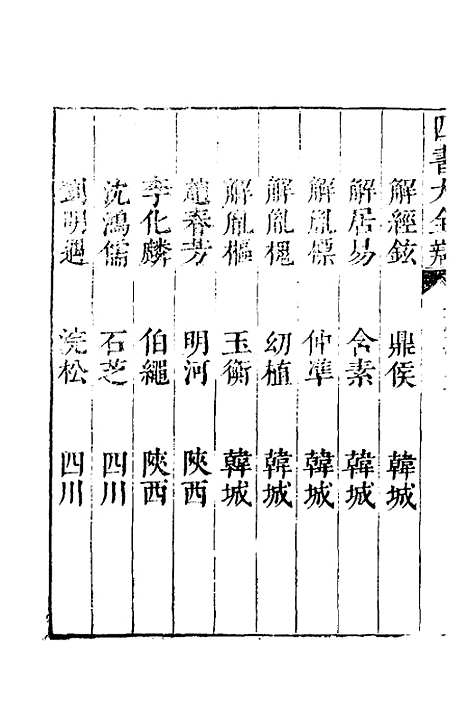 四書大全辯
解經鉉 鼎侯 韓城
解居易 含素 韓城
解胤標 仲準 韓城
解胤槐 幼植 韓城
解胤樞 玉衡 韓城
趙春芳 明河 陝西
李化麟 伯繩 陝西
沈鴻儒 石芝 四川
劉明遇 浣松 四川